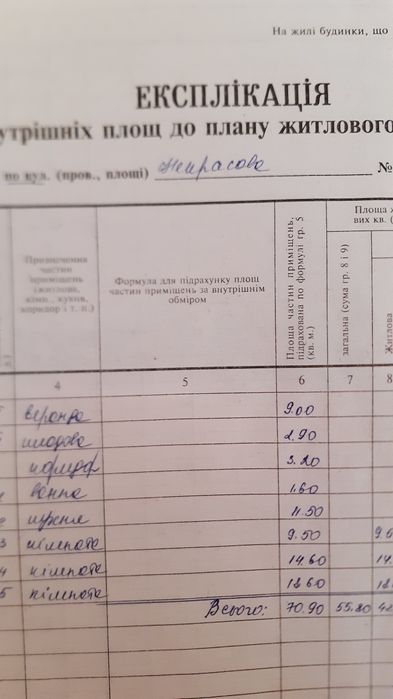 На жилі будинки, що
ЕКСПЛІКАЦІЯ
утрішніх площ до плану житлового
по вул. (пров., площі) Некрасова №
Призначення частин приміщень (житлова, кімн., кухня, коридор і т. п.)
Формула для підрахунку площ частин приміщень за внутрішнім обміром
Площа частин приміщень, підрахована по формулі гр. 5 (кв. м.)
Площа
вих кв. (
загальна (сума гр. 8 і 9)
Житлова
4 5 6 7 8
веранда 9.00
кладова 2.90
коридор 3.20
ванна 1.60
кухня 11.50
3 кімната 9.50
4 кімната 14.60
5 кімната 18.60
Всього: 70.90 55.80 42